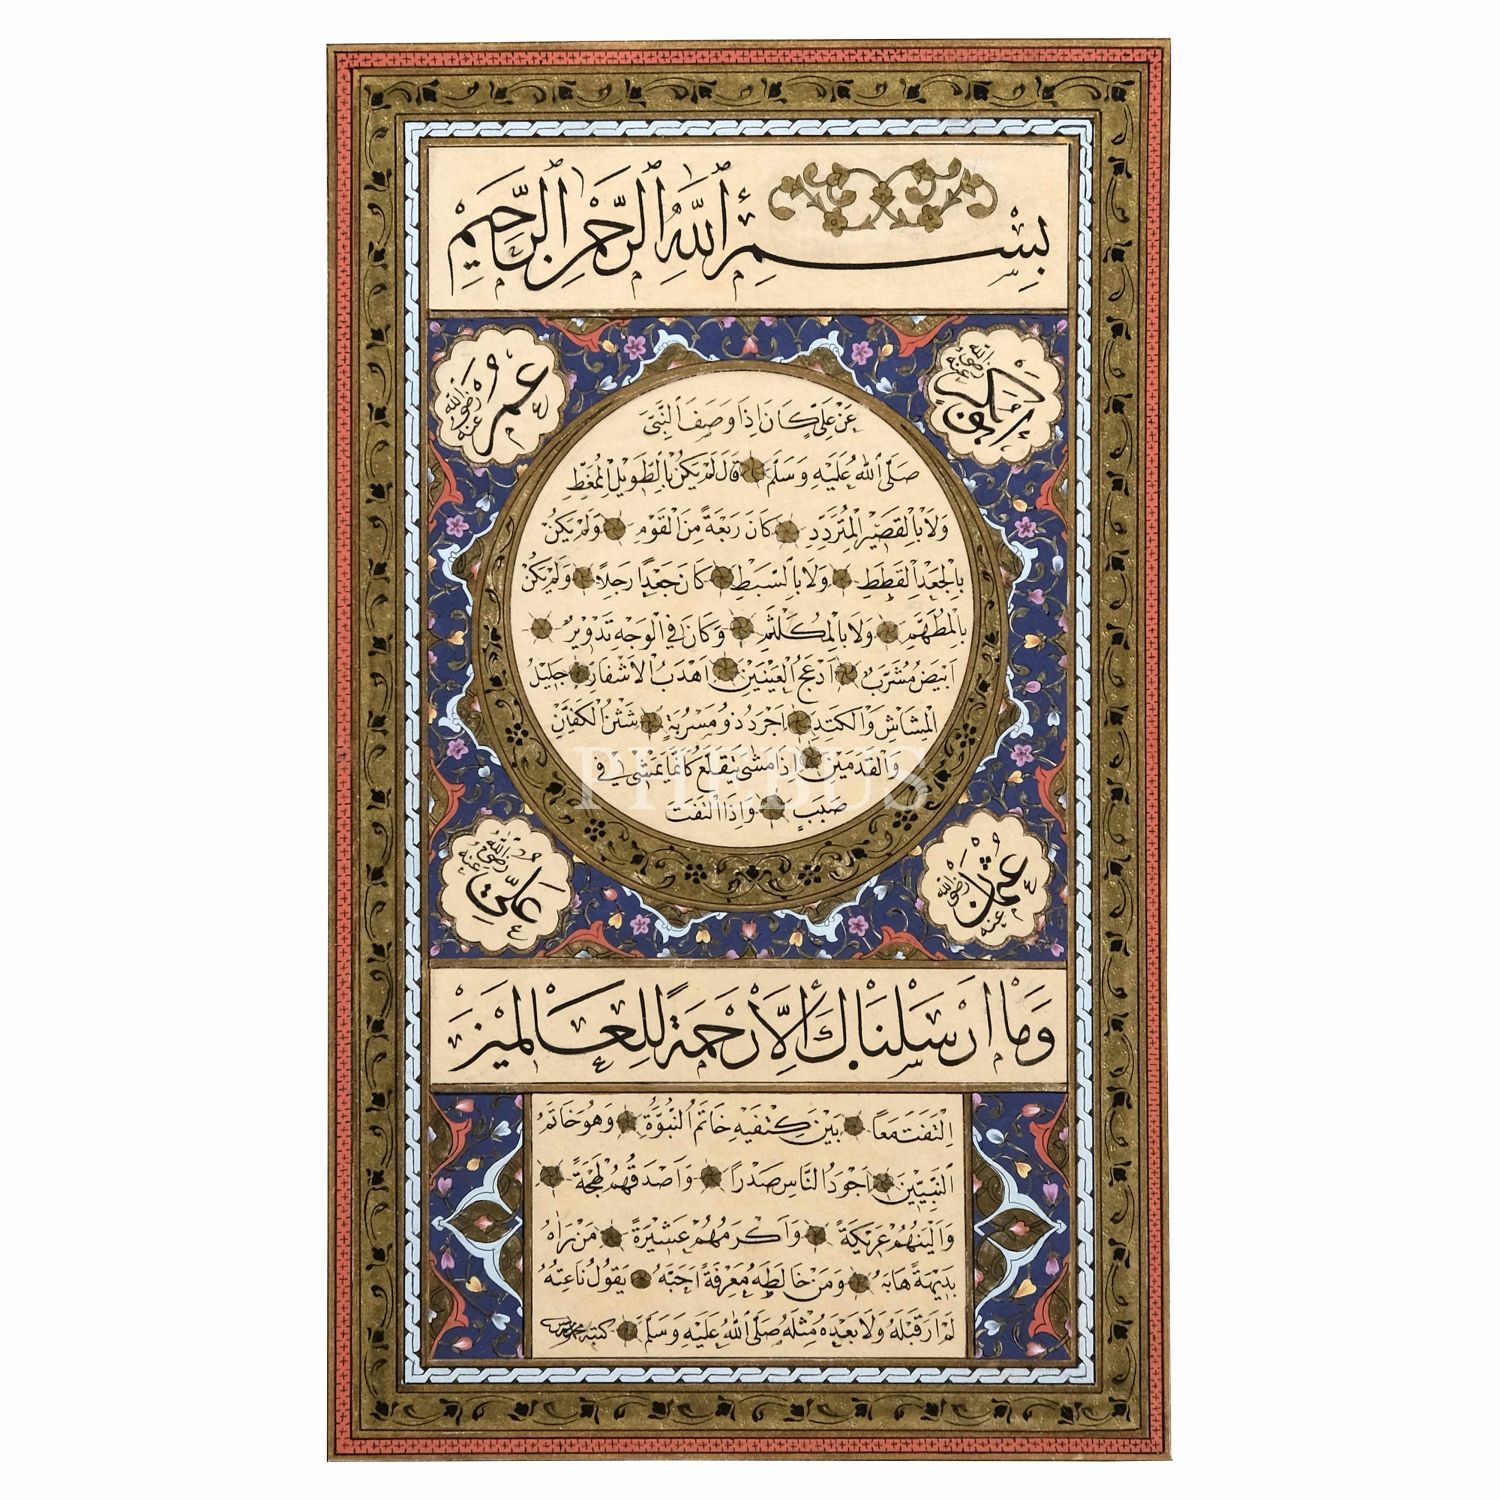 بِسْمِ ٱللّٰهِ ٱلرَّحْمٰنِ ٱلرَّحِيمِ
ابوبكر رضى الله عنه
عمر رضى الله عنه
عَنْ عَلِىٍّ كَانَ اِذَا وَصَفَ النَّبِىَّ
صَلَّى اللّٰهُ عَلَيْهِ وَسَلَّمَ قَالَ لَمْ يَكُنْ بِالطَّوِيلِ الْمُمَغَّطِ
وَلَا بِالْقَصِيرِ الْمُتَرَدِّدِ كَانَ رَبْعَةً مِنَ الْقَوْمِ وَلَمْ يَكُنْ
بِالْجَعْدِ الْقَطَطِ وَلَا بِالسَّبِطِ كَانَ جَعْدًا رَجِلًا وَلَمْ يَكُنْ
بِالْمُطَهَّمِ وَلَا بِالْمُكَلْثَمِ وَكَانَ فِى الْوَجْهِ تَدْوِيرٌ
اَبْيَضُ مُشْرَبٌ اَدْعَجُ الْعَيْنَيْنِ اَهْدَبُ الْاَشْفَارِ جَلِيلُ
الْمُشَاشِ وَالْكَتَدِ اَجْرَدُ ذُو مَسْرُبَةٍ شَثْنُ الْكَفَّيْنِ
وَالْقَدَمَيْنِ اِذَا مَشٰى يَتَقَلَّعُ كَاَنَّمَا يَمْشِى فِى
صَبَبٍ وَاِذَا الْتَفَتَ
PHEBUS
عثمان رضى الله عنه
على رضى الله عنه
وَمَا اَرْسَلْنَاكَ اِلَّا رَحْمَةً لِلْعَالَمِينَ
اِلْتَفَتَ مَعاً بَيْنَ كَتِفَيْهِ خَاتَمُ النُّبُوَّةِ وَهُوَ خَاتَمُ
النَّبِيِّينَ اَجْوَدُ النَّاسِ صَدْرًا وَاَصْدَقُهُمْ لَهْجَةً
وَاَلْيَنُهُمْ عَرِيكَةً وَاَكْرَمُهُمْ عَشِيرَةً مَنْ رَاٰهُ
بَدِيهَةً هَابَهُ وَمَنْ خَالَطَهُ مَعْرِفَةً اَحَبَّهُ يَقُولُ نَاعِتُهُ
لَمْ اَرَ قَبْلَهُ وَلَا بَعْدَهُ مِثْلَهُ صَلَّى اللّٰهُ عَلَيْهِ وَسَلَّمَ كتبه